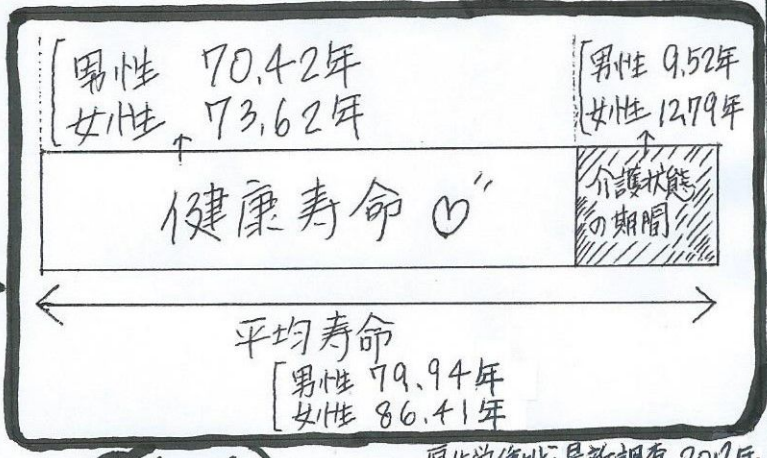 男性 70.42年
女性 73.62年
男性 9.52年
女性 12.79年
健康寿命
介護状態
の期間
平均寿命
男性 79.94年
女性 86.41年